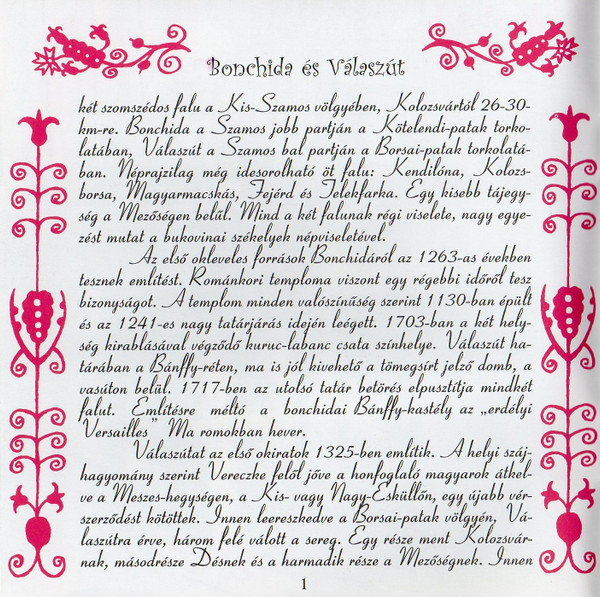 Bonchida és Válaszút
két szomszédos falu a Kis-Szamos völgyében, Kolozsvártól 26-30-
km-re. Bonchida a Szamos jobb partján a Kötelendi-patak torko-
latában, Válaszút a Szamos bal partján a Borsai-patak torkolatá-
ban. Néprajzilag még idesorolható öt falu: Kendilóna, Kolozs-
borsa, Magyarmacskás, Fejérd és Telekfarka. Egy kisebb tájegy-
ség a Mezőségen belűl. Mind a két falunak régi viselete, nagy egye-
zést mutat a bukovinai székelyek népviseletével.
Az első okleveles források Bonchidáról az 1263-as években
tesznek említést. Románkori temploma viszont egy régebbi időről tesz
bizonyságot. A templom minden valószínűség szerint 1130-ban épült
és az 1241-es nagy tatárjárás idején leégett. 1703-ban a két hely-
ség kirablásával végződő kuruc-labanc csata színhelye. Válaszút ha-
tárában a Bánffy-réten, ma is jól kivehető a tömegsírt jelző domb, a
vasúton belül. 1717-ben az utolsó tatár betörés elpusztítja mindkét
falut. Említésre méltó a bonchidai Bánffy-kastély az „erdélyi
Versailles” Ma romokban hever.
Válaszútat az első okiratok 1325-ben említik. A helyi száj-
hagyomány szerint Vereczke felől jőve a honfoglaló magyarok átkel-
ve a Meszes-hegységen, a Kis- vagy Nagy-Esküllőn, egy újabb vér-
szerződést kötöttek. Innen leereszkedve a Borsai-patak völgyén, Vá-
laszútra érve, három felé válott a sereg. Egy része ment Kolozsvár-
nak, másodrésze Désnek és a harmadik része a Mezőségnek. Innen
1